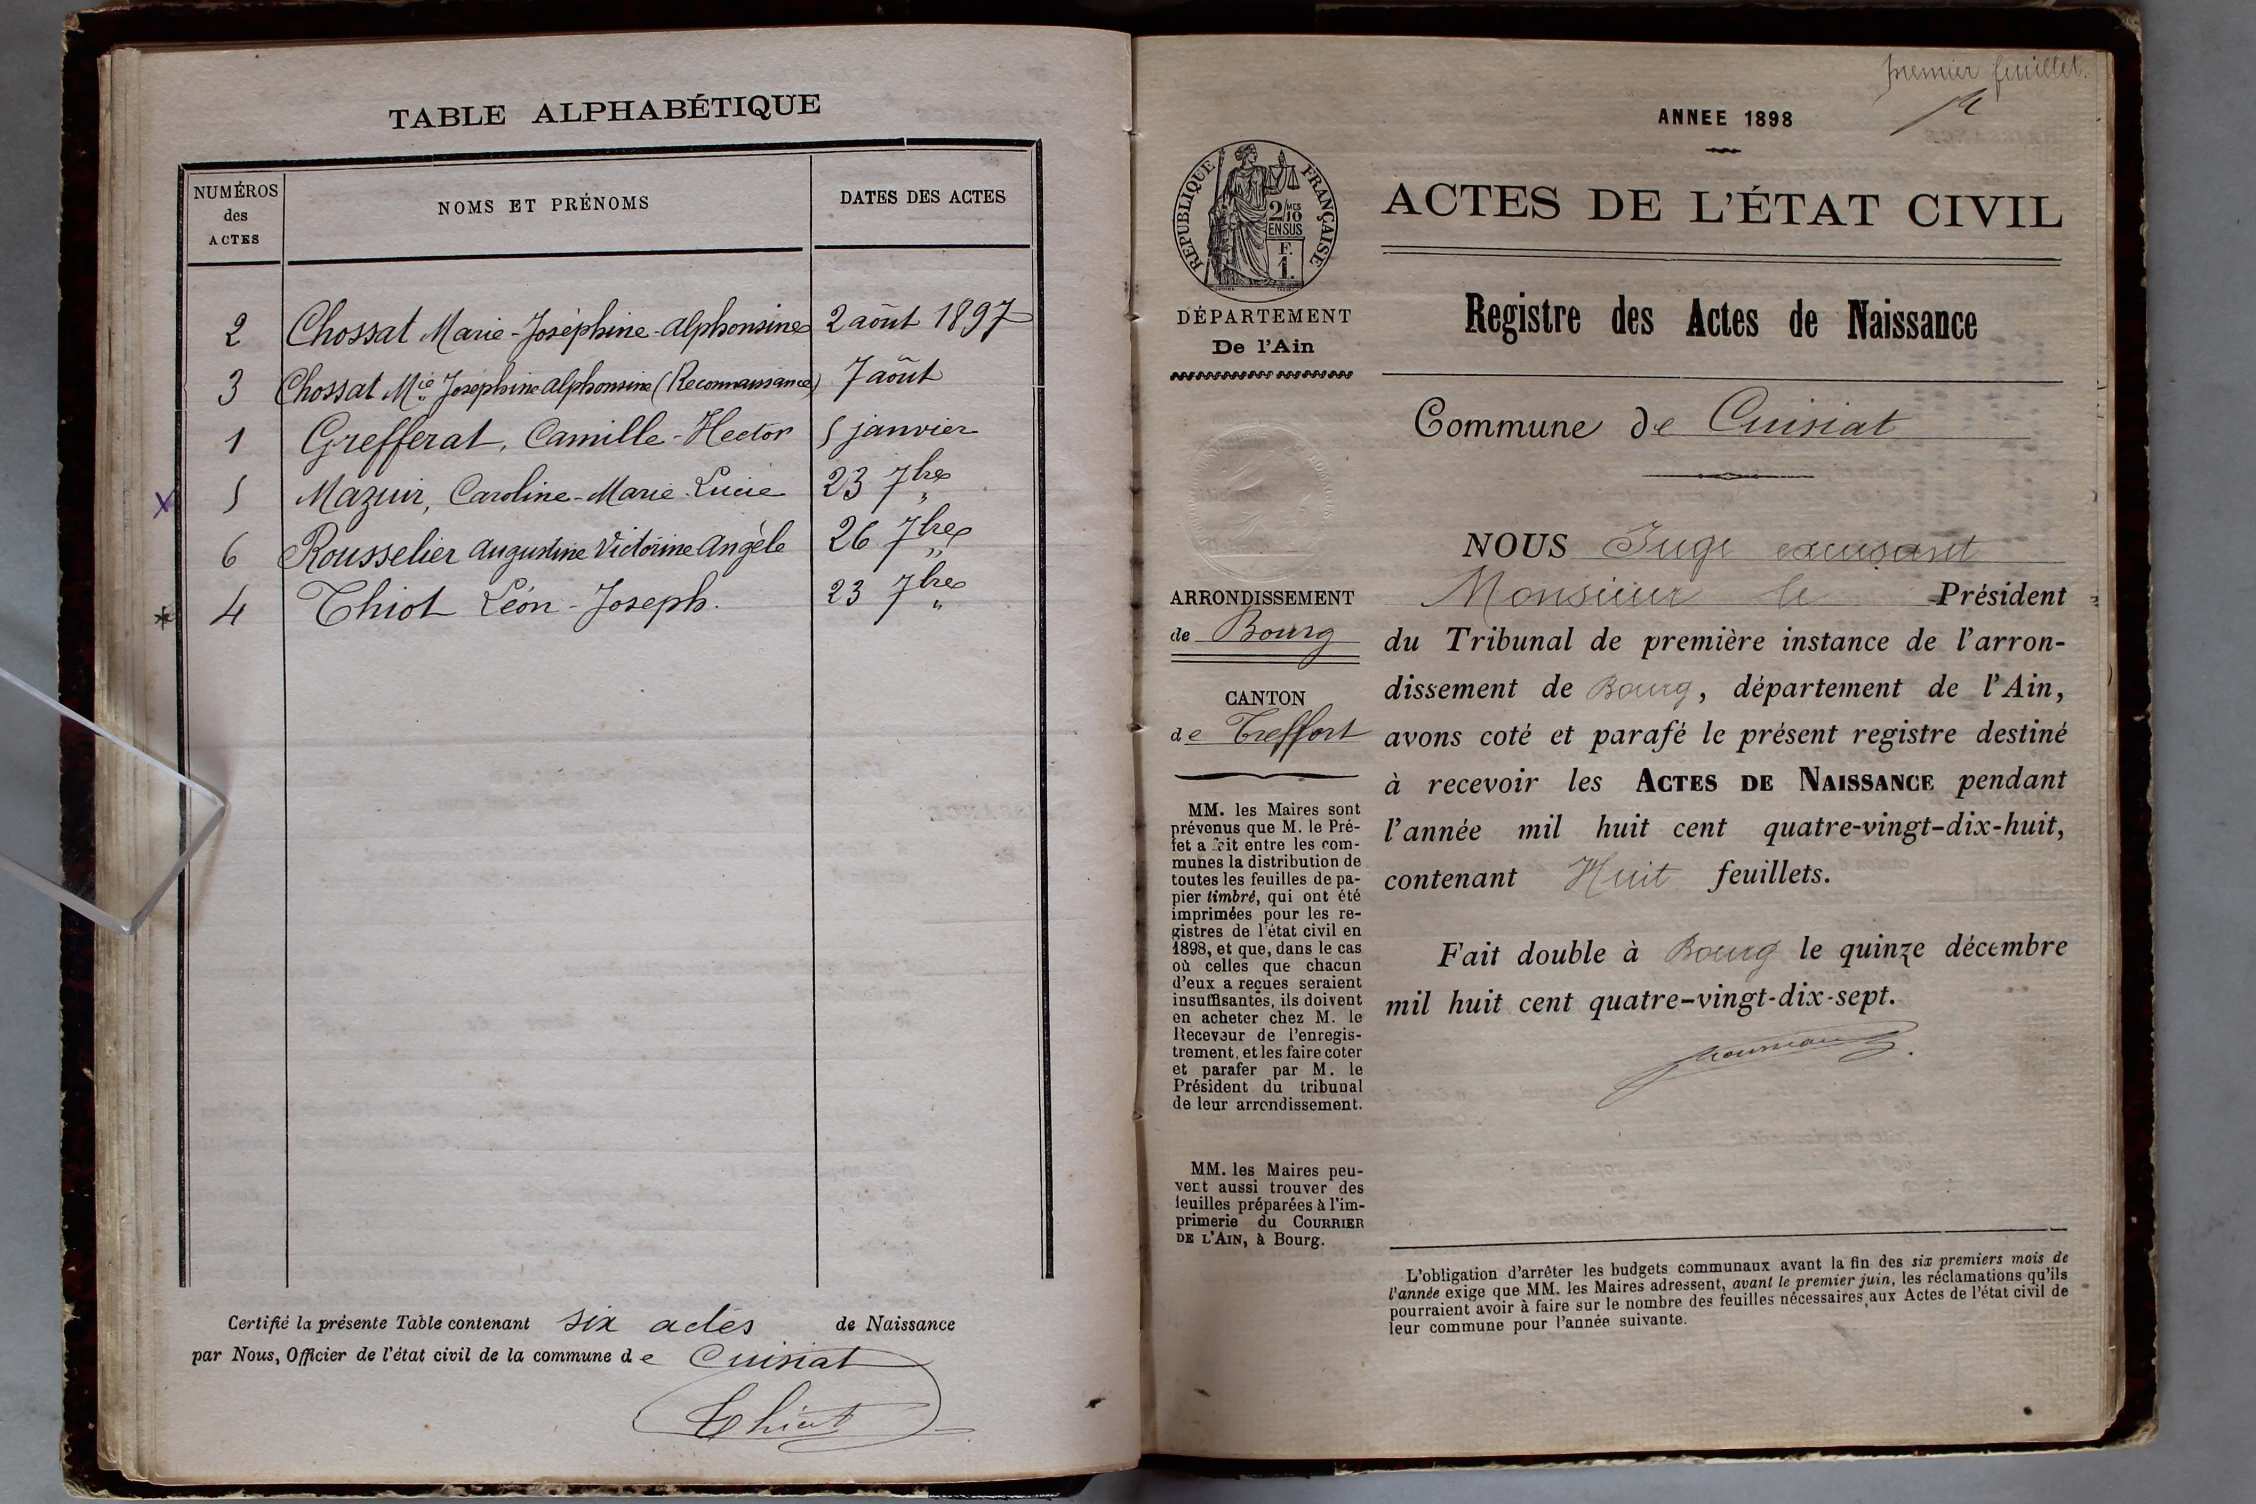 TABLE ALPHABÉTIQUE
NUMÉROS des ACTES
NOMS ET PRÉNOMS
DATES DES ACTES
2 Chossat Marie-Joséphine-Alphonsine 2 août 1897
3 Chossat Mie Joséphine Alphonsine (Reconnaissance) 7 août
1 Grefferat, Camille-Hector 5 janvier
5 Mazuir, Caroline-Marie-Lucie 23 7bre
6 Rousselier Augustine Victorine Angèle 26 7bre
4 Thiot Léon-Joseph. 23 7bre
Certifié la présente Table contenant six actes de Naissance
par Nous, Officier de l'état civil de la commune de Cuisiat
Thiot
premier feuillet.
ANNEE 1898
RÉPUBLIQUE FRANÇAISE
2/10 MES
EN SUS
F.
1.
DÉPARTEMENT
De l'Ain
ARRONDISSEMENT
de Bourg
CANTON
de Treffort
MM. les Maires sont
prévenus que M. le Pré-
fet a fait entre les com-
munes la distribution de
toutes les feuilles de pa-
pier timbré, qui ont été
imprimées pour les re-
gistres de l'état civil en
1898, et que, dans le cas
où celles que chacun
d'eux a reçues seraient
insuffisantes, ils doivent
en acheter chez M. le
Receveur de l'enregis-
trement, et les faire coter
et parafer par M. le
Président du tribunal
de leur arrondissement.
MM. les Maires peu-
vent aussi trouver des
feuilles préparées à l'im-
primerie du COURRIER
DE L'AIN, à Bourg.
ACTES DE L'ÉTAT CIVIL
Registre des Actes de Naissance
Commune de Cuisiat
NOUS Juge excusant
Monsieur le Président
du Tribunal de première instance de l'arron-
dissement de Bourg, département de l'Ain,
avons coté et parafé le présent registre destiné
à recevoir les ACTES DE NAISSANCE pendant
l'année mil huit cent quatre-vingt-dix-huit,
contenant Huit feuillets.
Fait double à Bourg le quinze décembre
mil huit cent quatre-vingt-dix-sept.
L'obligation d'arrêter les budgets communaux avant la fin des six premiers mois de
l'année exige que MM. les Maires adressent, avant le premier juin, les réclamations qu'ils
pourraient avoir à faire sur le nombre des feuilles nécessaires aux Actes de l'état civil de
leur commune pour l'année suivante.